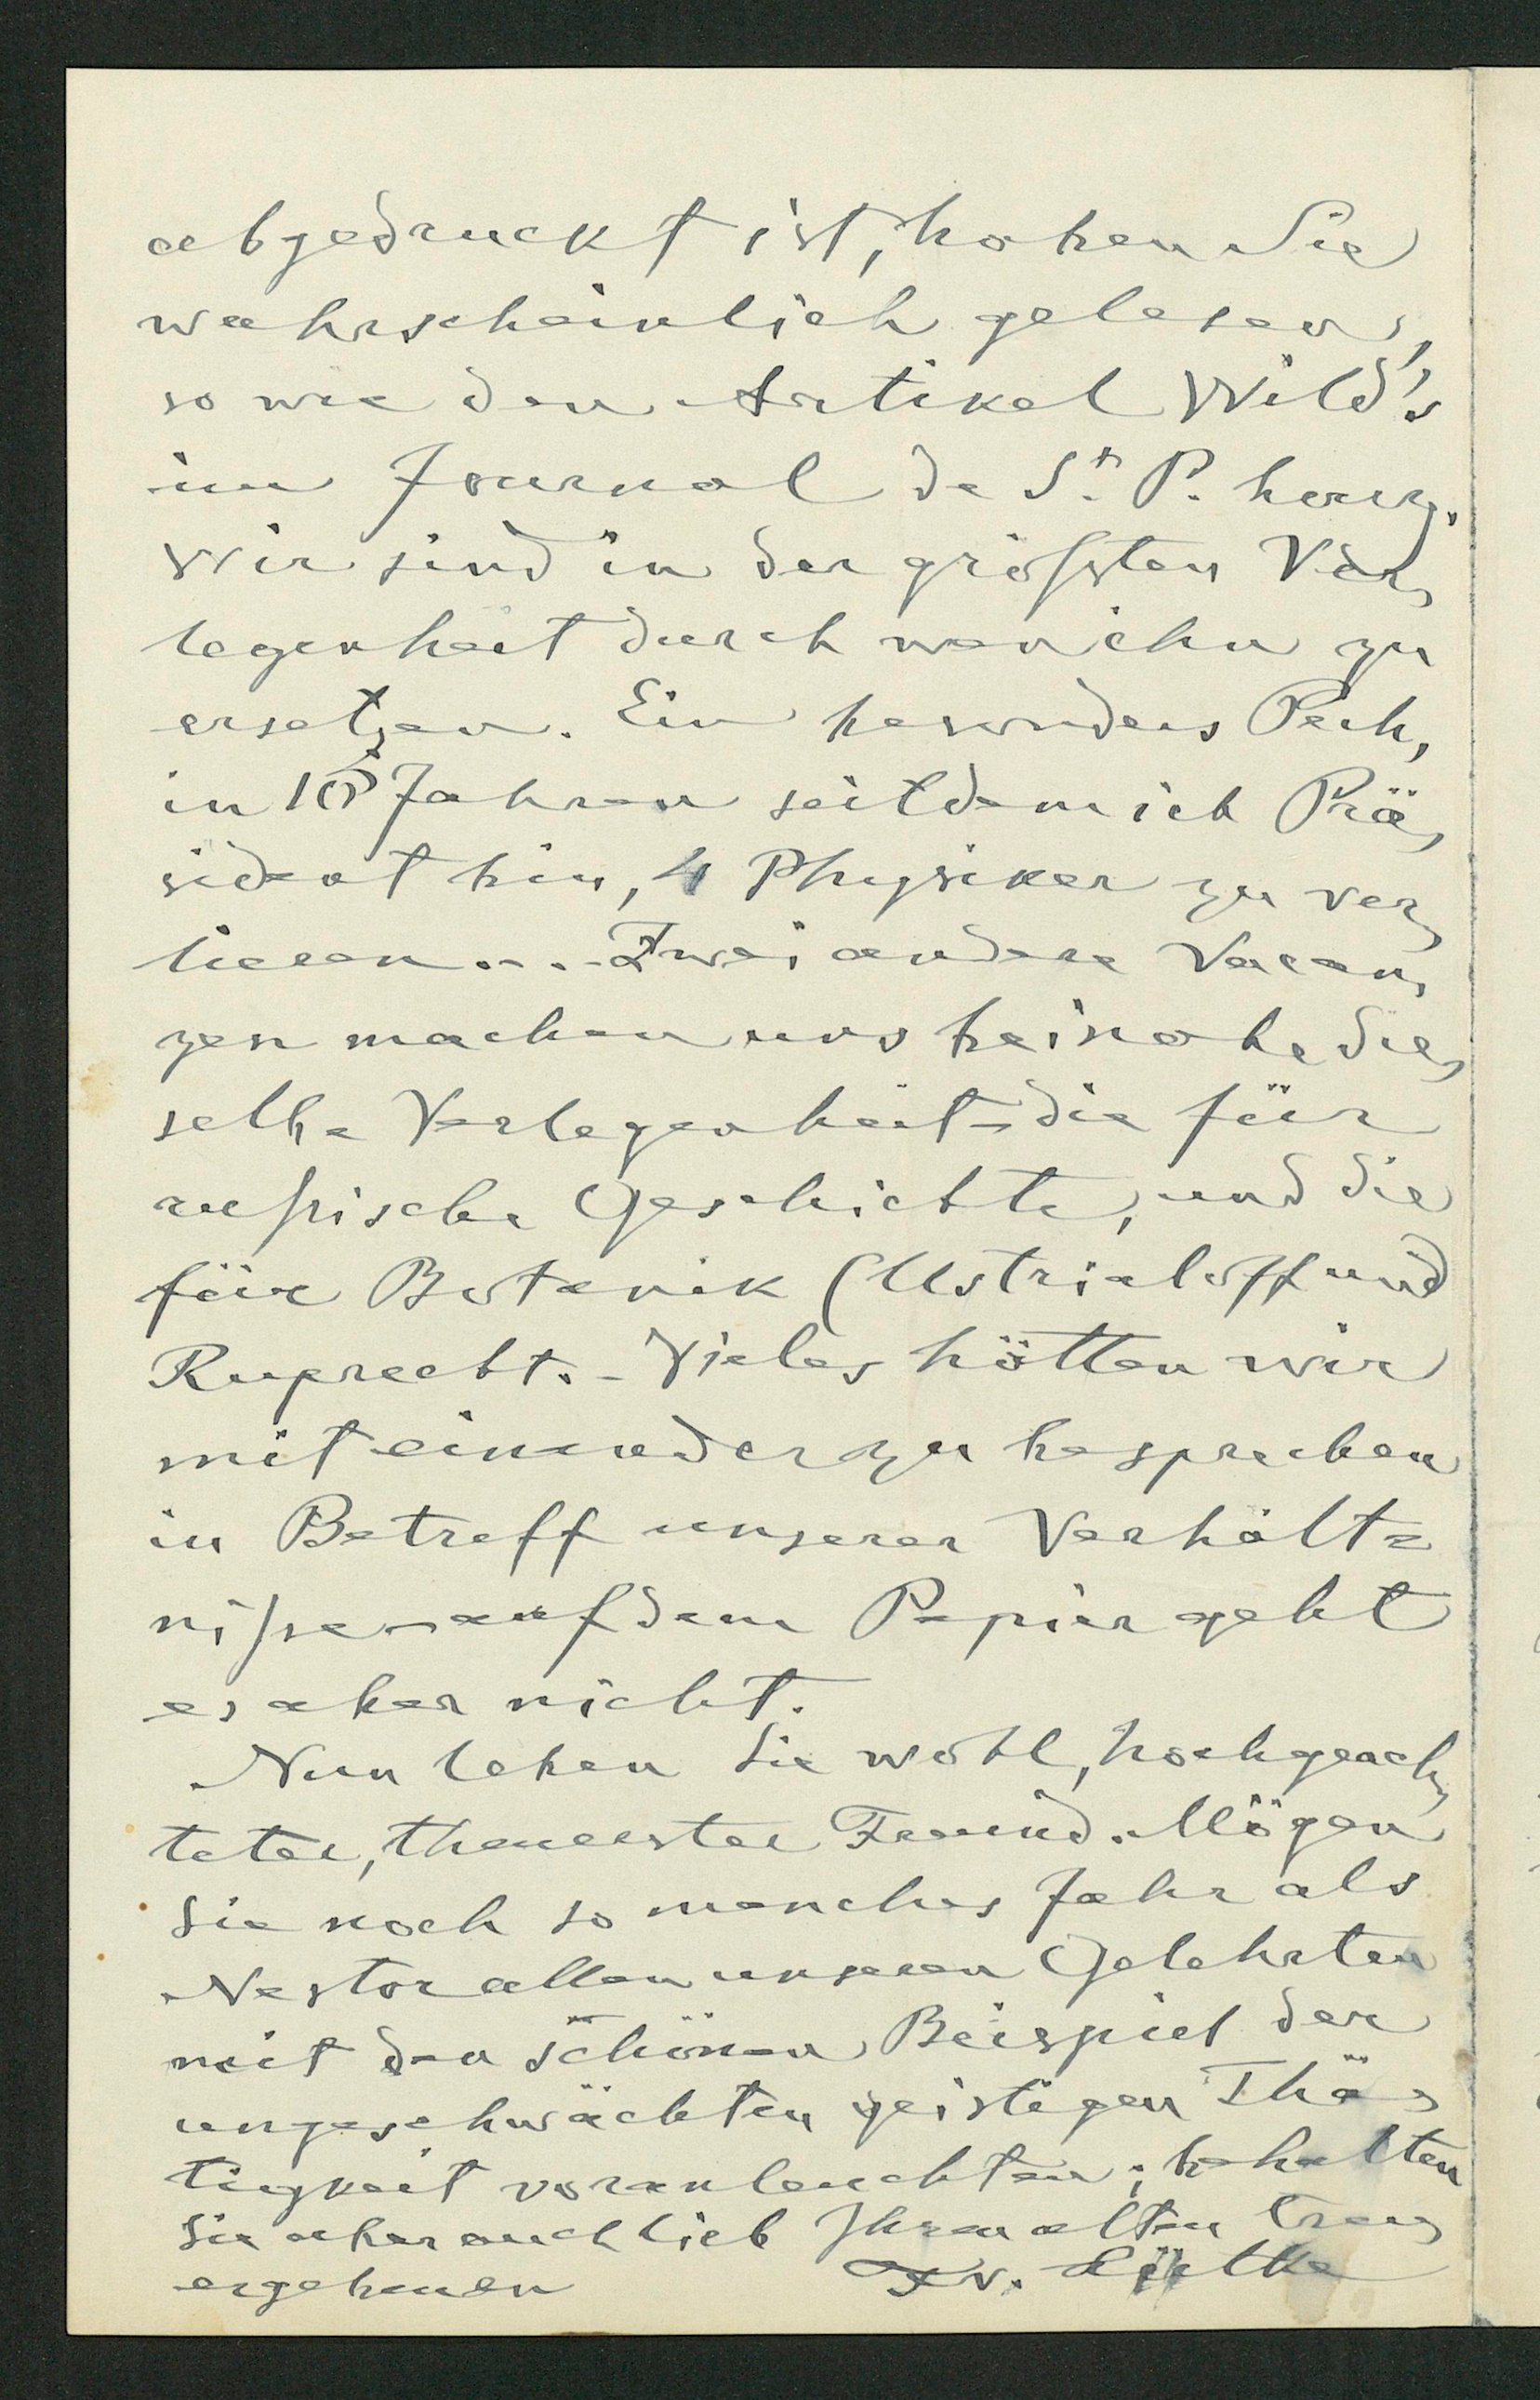 abgedruckt ist, haben Sie
wahrscheinlich gelesen,
so wie den Artikel Wild's
im Journal de St. P. bourg.
Wir sind in der größten Ver,
legenheit durch wen ihn zu
ersetzen. Ein besonders Pech,
in 10 Jahren seitdem ich Prä,
sident bin, 4 Physiker zu ver,
lieren... Zwei andere Vacan,
zen machen uns beinahe die,
selbe Verlegenheit – die für
rußische Geschichte, und die
für Botanik (Ustrialoff und
Ruprecht. – Vieles hätten wir
mit einander zu besprechen
in Betreff unserer Verhält=
niße – auf dem Papier geht
es aber nicht.
Nun leben Sie wohl, hochgeach,
teter, theuerster Freund. Mögen
Sie noch so manches Jahr als
Nestor allen unseren Gelehrten
mit den schönen Beispiel der
ungeschwächten geistigen Thä,
tigkeit voranleuchten; behalten
Sie aber auch lieb Ihren alten treu,
ergebenen F. v. Lütke